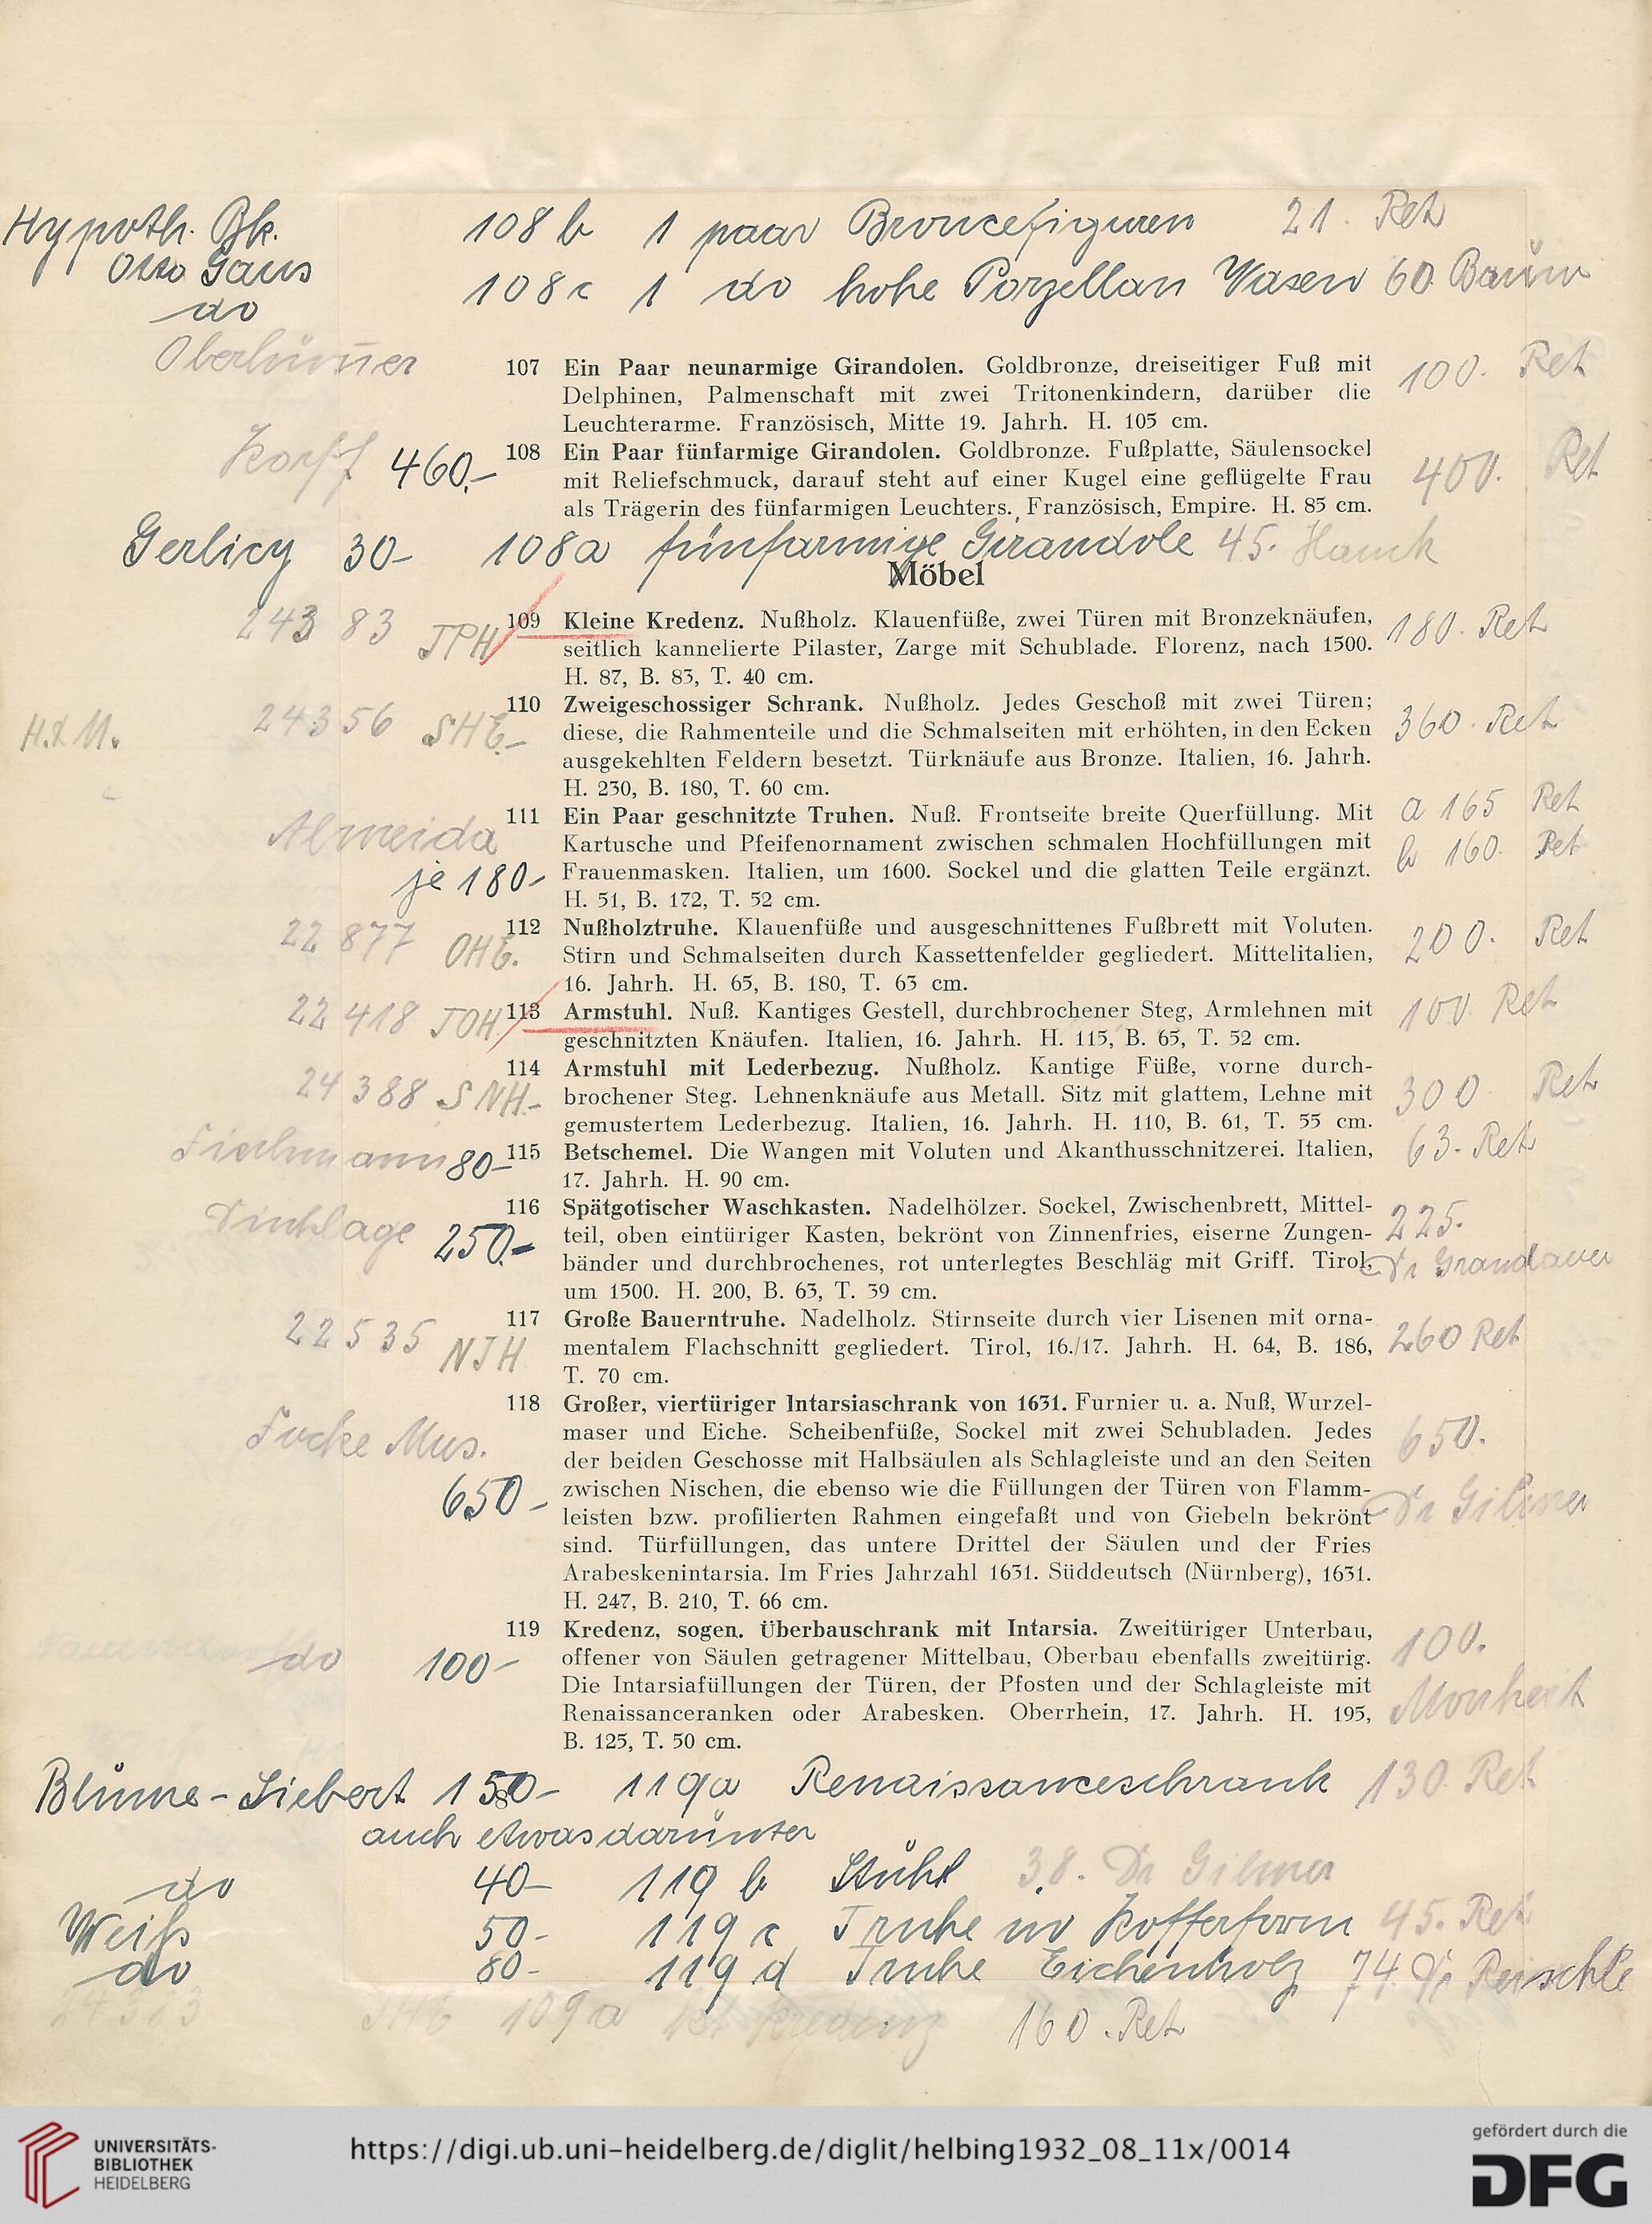 Hypoth. Bk. 108 b 1 paar Broncefiguren 21. Ret
Otto Gaus
do 108 c 1 do hohe Porzellan Vasen 60. Baum
107 Ein Paar neunarmige Girandolen. Goldbronze, dreiseitiger Fuß mit 100. Ret
Delphinen, Palmenschaft mit zwei Tritonenkindern, darüber die
Leuchterarme. Französisch, Mitte 19. Jahrh. H. 105 cm.
Korff 460.- 108 Ein Paar fünfarmige Girandolen. Goldbronze. Fußplatte, Säulensockel 400. Ret
mit Reliefschmuck, darauf steht auf einer Kugel eine geflügelte Frau
als Trägerin des fünfarmigen Leuchters. Französisch, Empire. H. 85 cm.
Gerlicy 30- 108a fünfarmige Girandole 45. Hauck
Möbel
24383 JPH 109 Kleine Kredenz. Nußholz. Klauenfüße, zwei Türen mit Bronzeknäufen, 180. Ret
seitlich kannelierte Pilaster, Zarge mit Schublade. Florenz, nach 1500.
H. 87, B. 83, T. 40 cm.
H. & M. 24356 SHE.- 110 Zweigeschossiger Schrank. Nußholz. Jedes Geschoß mit zwei Türen; 360. Ret
diese, die Rahmenteile und die Schmalseiten mit erhöhten, in den Ecken
ausgekehlten Feldern besetzt. Türknäufe aus Bronze. Italien, 16. Jahrh.
H. 230, B. 180, T. 60 cm.
Almeida 111 Ein Paar geschnitzte Truhen. Nuß. Frontseite breite Querfüllung. Mit a 165 Ret
Kartusche und Pfeifenornament zwischen schmalen Hochfüllungen mit b 160. Ret
je 180- Frauenmasken. Italien, um 1600. Sockel und die glatten Teile ergänzt.
H. 51, B. 172, T. 52 cm.
22877 OHE. 112 Nußholztruhe. Klauenfüße und ausgeschnittenes Fußbrett mit Voluten. 200. Ret
Stirn und Schmalseiten durch Kassettenfelder gegliedert. Mittelitalien,
16. Jahrh. H. 65, B. 180, T. 63 cm.
22418 JOH 113 Armstuhl. Nuß. Kantiges Gestell, durchbrochener Steg, Armlehnen mit 100. Ret
geschnitzten Knäufen. Italien, 16. Jahrh. H. 115, B. 65, T. 52 cm.
24388 SNH.- 114 Armstuhl mit Lederbezug. Nußholz. Kantige Füße, vorne durch- 300 Ret
brochener Steg. Lehnenknäufe aus Metall. Sitz mit glattem, Lehne mit
gemustertem Lederbezug. Italien, 16. Jahrh. H. 110, B. 61, T. 55 cm.
80- 115 Betschemel. Die Wangen mit Voluten und Akanthusschnitzerei. Italien, 63. Ret
17. Jahrh. H. 90 cm.
Dinklage 250.- 116 Spätgotischer Waschkasten. Nadelhölzer. Sockel, Zwischenbrett, Mittel- 225.
teil, oben eintüriger Kasten, bekrönt von Zinnenfries, eiserne Zungen-
bänder und durchbrochenes, rot unterlegtes Beschläg mit Griff. Tirol, Dr Grandauer
um 1500. H. 200, B. 63, T. 39 cm.
22535 NJH 117 Große Bauerntruhe. Nadelholz. Stirnseite durch vier Lisenen mit orna- 260 Ret
mentalem Flachschnitt gegliedert. Tirol, 16./17. Jahrh. H. 64, B. 186,
T. 70 cm.
Focke Mus. 118 Großer, viertüriger Intarsiaschrank von 1631. Furnier u. a. Nuß, Wurzel-
maser und Eiche. Scheibenfüße, Sockel mit zwei Schubladen. Jedes 650.
der beiden Geschosse mit Halbsäulen als Schlagleiste und an den Seiten
650- zwischen Nischen, die ebenso wie die Füllungen der Türen von Flamm-
leisten bzw. profilierten Rahmen eingefaßt und von Giebeln bekrönt Dr Gilmer
sind. Türfüllungen, das untere Drittel der Säulen und der Fries
Arabeskenintarsia. Im Fries Jahrzahl 1631. Süddeutsch (Nürnberg), 1631.
H. 247, B. 210, T. 66 cm.
do 100- 119 Kredenz, sogen. Überbauschrank mit Intarsia. Zweitüriger Unterbau, 100.
offener von Säulen getragener Mittelbau, Oberbau ebenfalls zweitürig.
Die Intarsiafüllungen der Türen, der Pfosten und der Schlagleiste mit
Renaissanceranken oder Arabesken. Oberrhein, 17. Jahrh. H. 195,
B. 125, T. 50 cm.
Blume-Siebert 150- 119a Renaissanceschrank 130. Ret
auch etwas darunter
do 40- 119 b Stuhl 38. Dr Gilmer
Weiß 50- 119 c Truhe in Kofferform 45. Ret
do 80- 119 d Truhe Eichenholz 74. Dr Reischle
109a kl. Kredenz 160. Ret
UNIVERSITÄTS-
BIBLIOTHEK
HEIDELBERG
https://digi.ub.uni-heidelberg.de/diglit/helbing1932_08_11x/0014
gefördert durch die
DFG